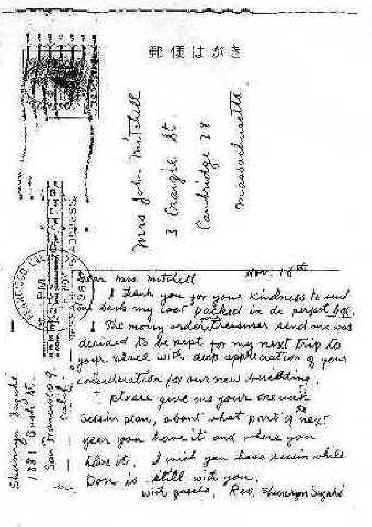 郵便はがき
Mrs John Mitchell
3 Craigie St.
Cambridge 38
Massachusetts
Shunryu Suzuki
1881 Bush St.
San Francisco 9
Calif.
Dear Mrs. Mitchell
Nov. 18th
I thank you for your kindness to send
me back my coat packed in de perfect box.
The money order Treasurer send me was
decided to be kept for my next trip to
your place with deep appreciation of your
consideration for our new building.
please give me your one week
sessin plan, about what part of next
year you have it and where you
have it. I wish you have sessin while
Dono is still with you.
with gassho, Rev. Shunryu Suzuki